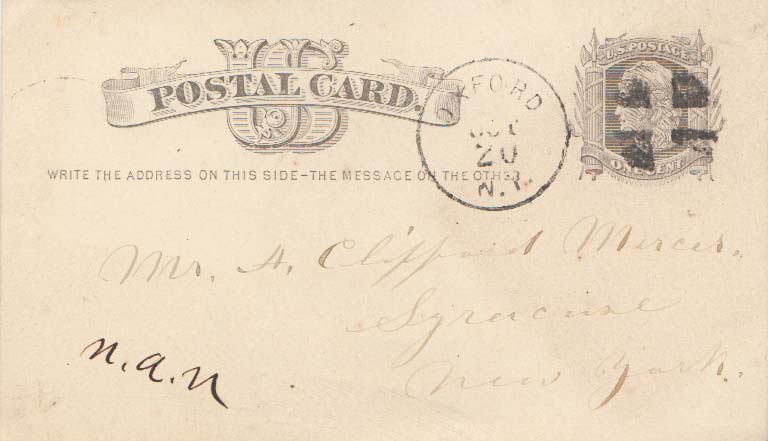 U.S. POSTAGE
US
POSTAL CARD.
OXFORD
OCT
20
N.Y.
ONE CENT
WRITE THE ADDRESS ON THIS SIDE—THE MESSAGE ON THE OTHER
Mr. A. Clifford Mercer.
Syracuse
New York.
n.a.n